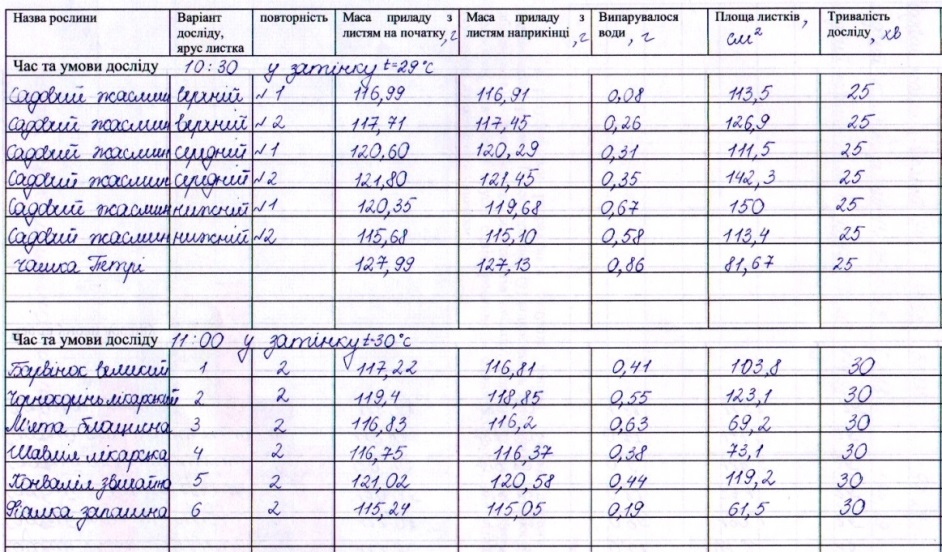 Назва рослини Варіант досліду, ярус листка повторність Маса приладу з листям на початку, г Маса приладу з листям наприкінці, г Випарувалося води, г Площа листків, см² Тривалість досліду, хв
Час та умови досліду 10:30 у затінку t=29°C
Садовий жасмин верхній №1 116,99 116,91 0,08 113,5 25
Садовий жасмин верхній №2 117,71 117,45 0,26 126,9 25
Садовий жасмин середній №1 120,60 120,29 0,31 111,5 25
Садовий жасмин середній №2 121,80 121,45 0,35 142,3 25
Садовий жасмин нижній №1 120,35 119,68 0,67 150 25
Садовий жасмин нижній №2 115,68 115,10 0,58 113,4 25
Чашка Петрі 127,99 127,13 0,86 81,67 25
Час та умови досліду 11:00 у затінку t-30°C
Барвінок великий 1 2 117,22 116,81 0,41 103,8 30
Чорнокорінь лікарський 2 2 119,4 118,85 0,55 123,1 30
М'ята блошина 3 2 116,83 116,2 0,63 69,2 30
Шавлія лікарська 4 2 116,75 116,37 0,38 73,1 30
Конвалія звичайна 5 2 121,02 120,58 0,44 119,2 30
Фіалка запашна 6 2 115,24 115,05 0,19 61,5 30